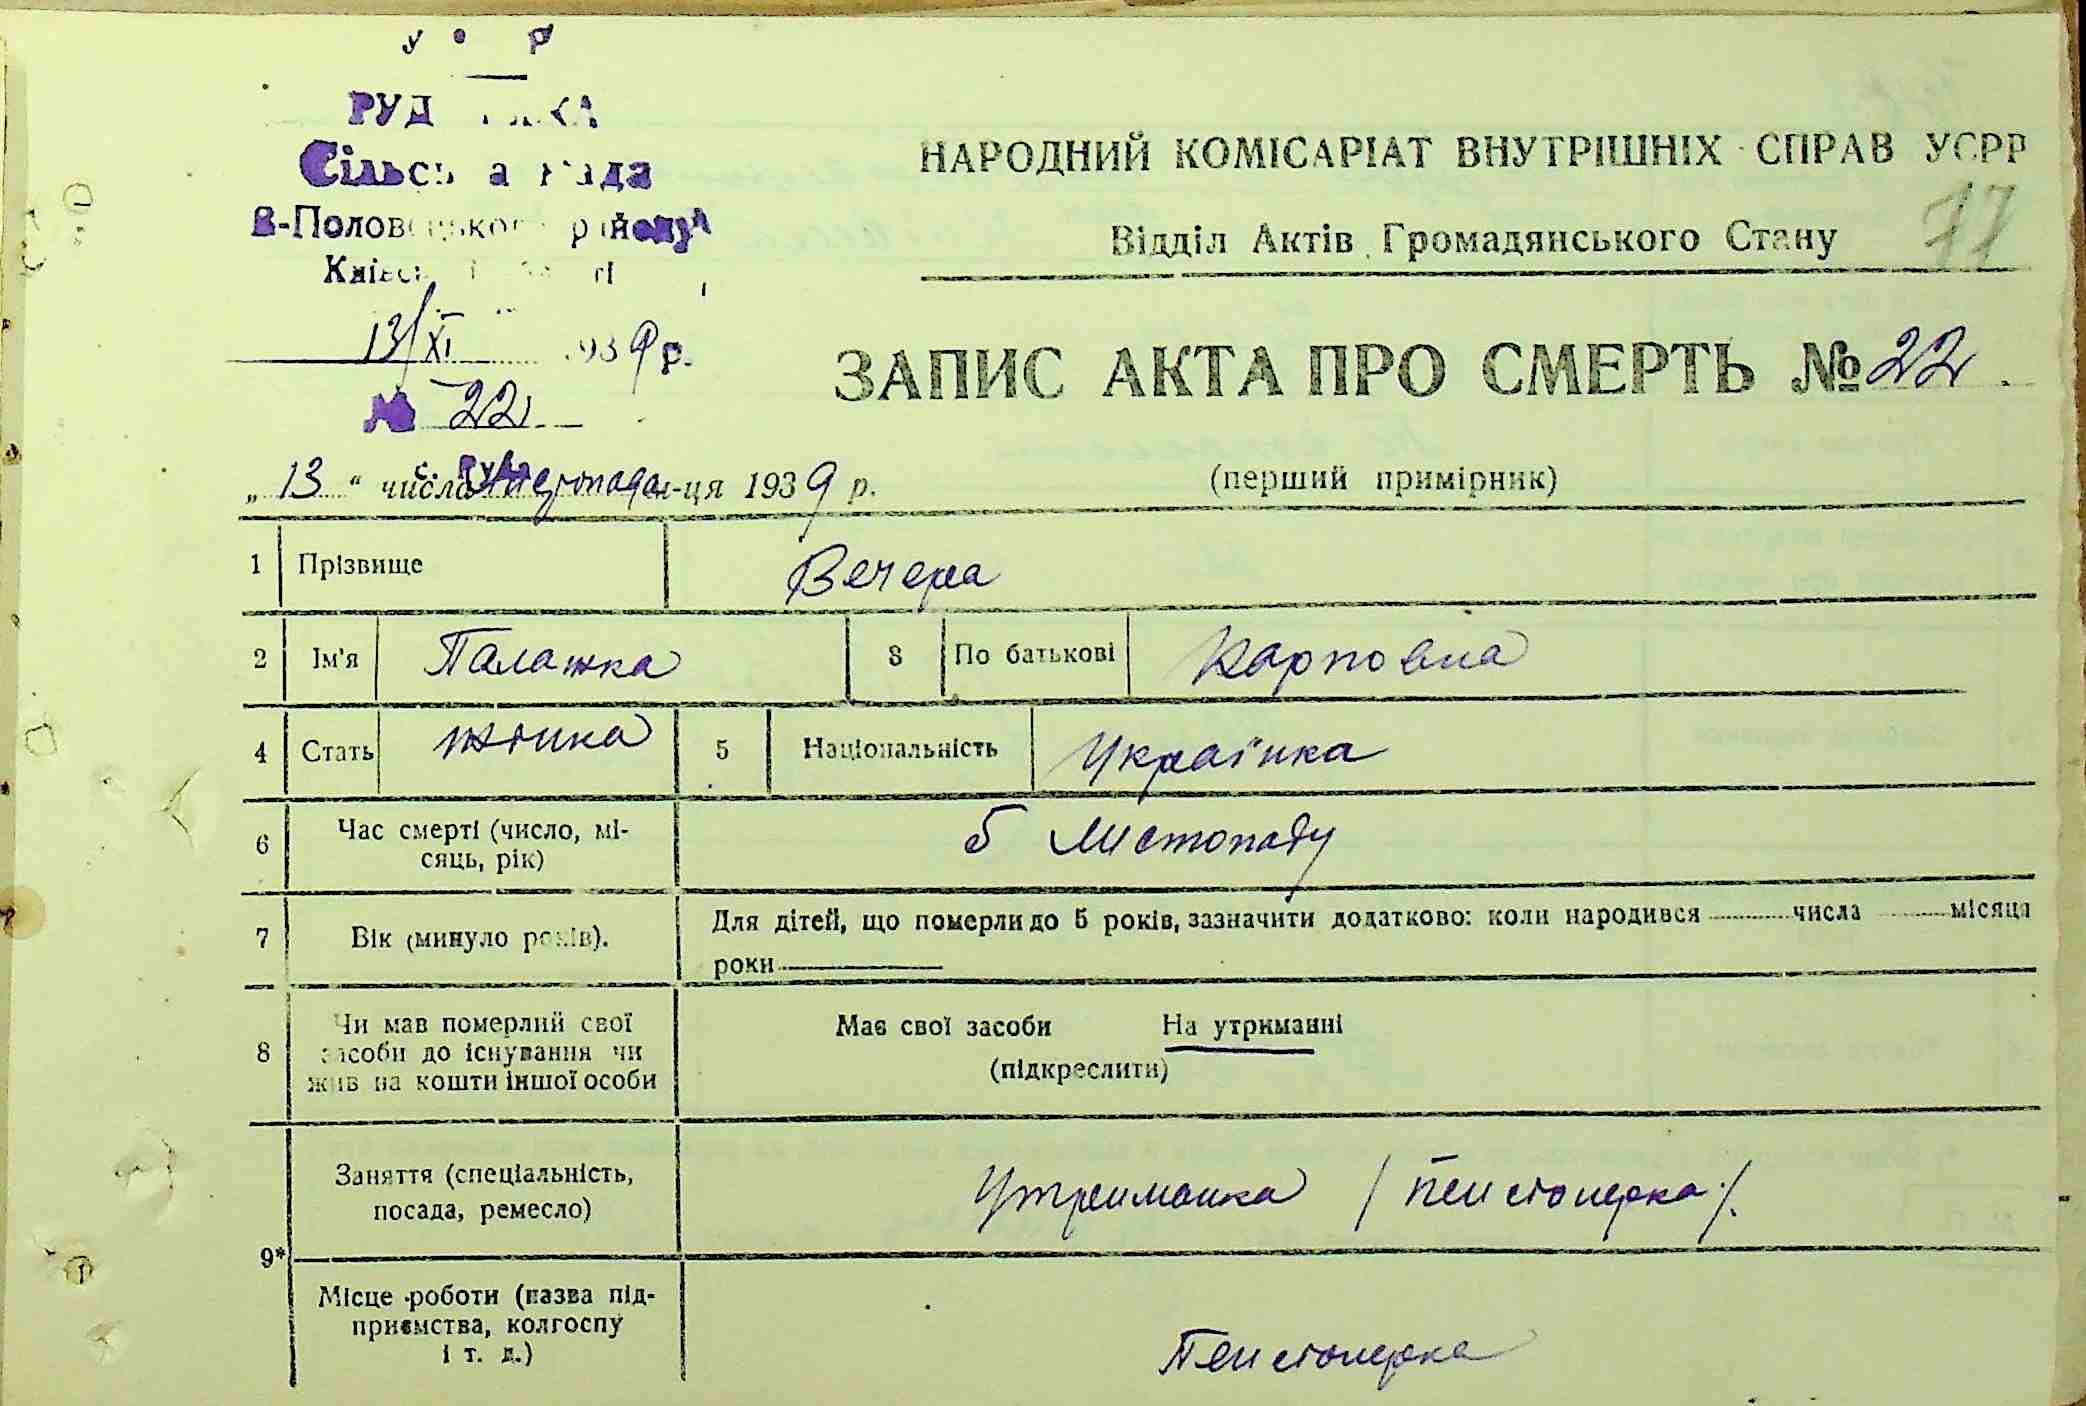 У Р
РУД КА
Сільсь а Рада
В-Половецького району
Київс і ті
13/XI 1939 р.
№ 22
НАРОДНИЙ КОМІСАРІАТ ВНУТРІШНІХ СПРАВ УСРР
77
Відділ Актів Громадянського Стану
ЗАПИС АКТА ПРО СМЕРТЬ № 22.
„13“ числа Листопада м-ця 1939 р.
(перший примірник)
1 Прізвище Вечера
2 Ім'я Палажка 3 По батькові Карповна
4 Стать жінка 5 Національність Українка
6 Час смерті (число, мі-
сяць, рік) 5 Листопаду
7 Вік (минуло років). Для дітей, що померли до 5 років, зазначити додатково: коли народився числа місяця
роки
8 Чи мав померлий свої
засоби до існування чи
жив на кошти іншої особи
Має свої засоби На утриманні
(підкреслити)
9* Заняття (спеціальність,
посада, ремесло) Утриманка /пенсіонерка/.
Місце роботи (назва під-
приємства, колгоспу
і т. д.) Пенсіонерка